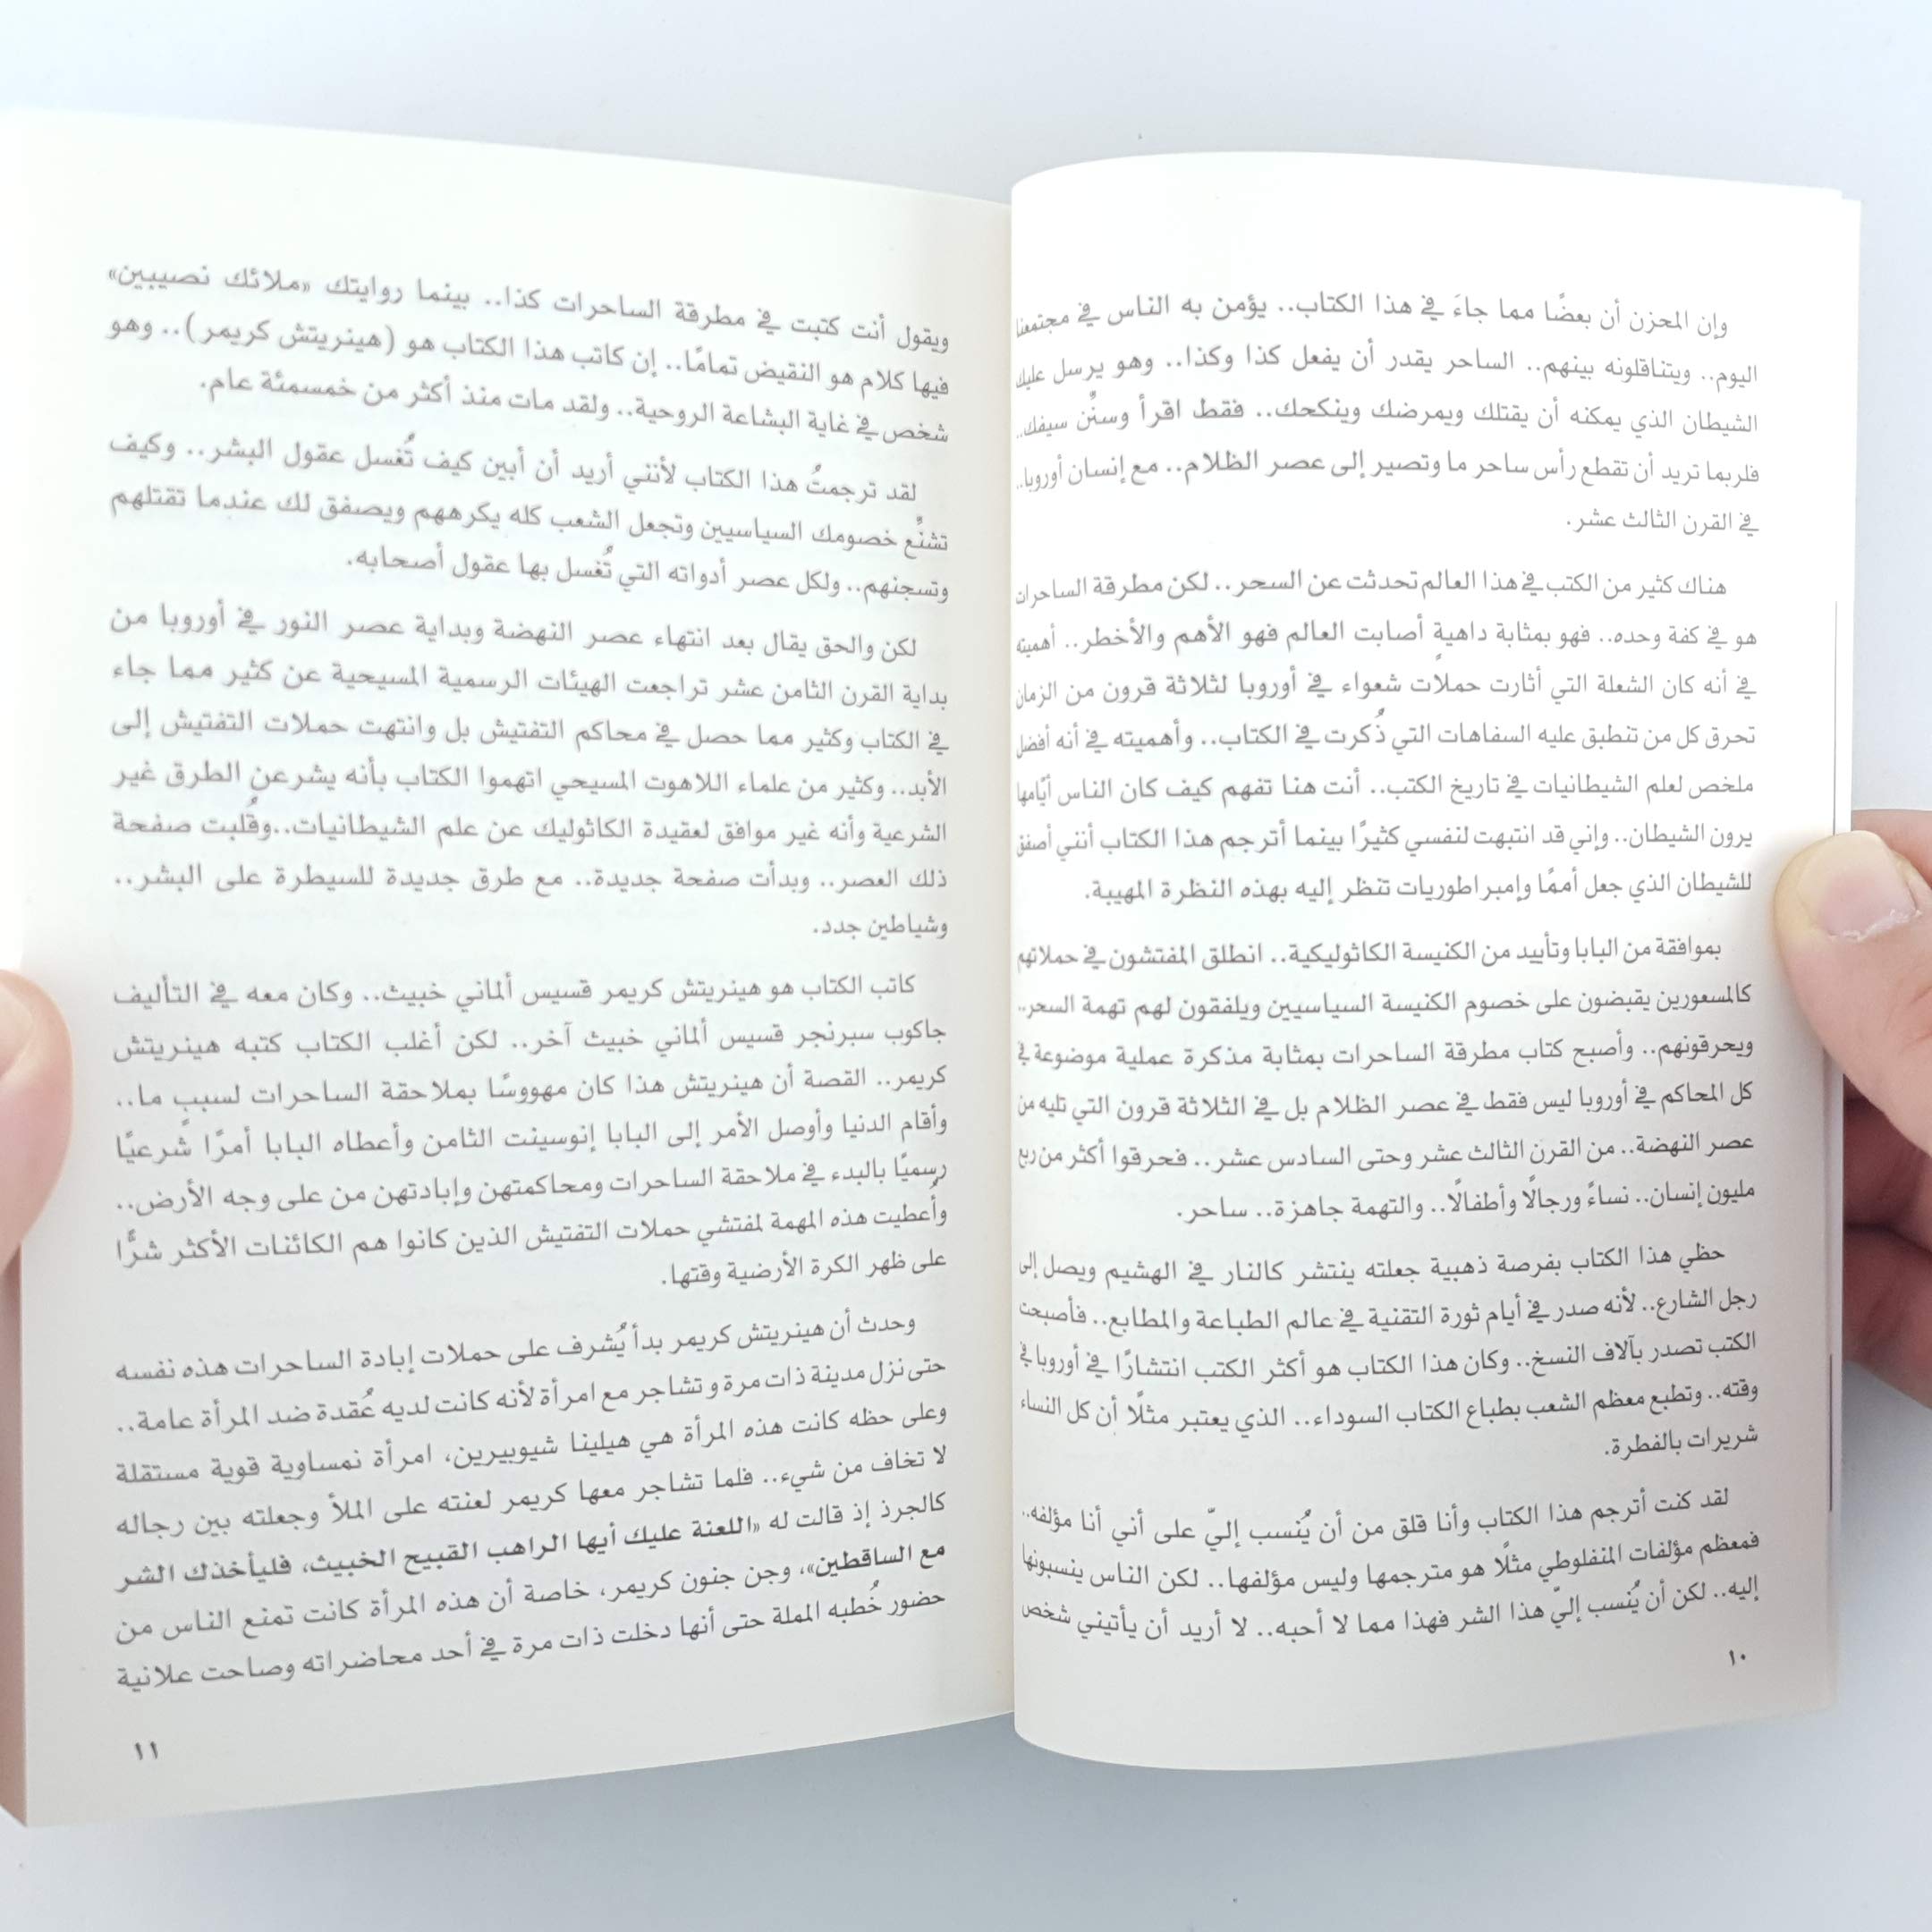 وإن المحزن أن بعضًا مما جاءَ في هذا الكتاب.. يؤمن به الناس في مجتمعنا
اليوم.. ويتناقلونه بينهم.. الساحر يقدر أن يفعل كذا وكذا.. وهو يرسل عليك
الشيطان الذي يمكنه أن يقتلك ويمرضك وينكحك.. فقط اقرأ وسنِّن سيفك..
فلربما تريد أن تقطع رأس ساحر ما وتصير إلى عصر الظلام.. مع إنسان أوروبا..
في القرن الثالث عشر.
هناك كثير من الكتب في هذا العالم تحدثت عن السحر.. لكن مطرقة الساحرات
هو في كفة وحده.. فهو بمثابة داهيةٍ أصابت العالم فهو الأهم والأخطر.. أهميته
في أنه كان الشعلة التي أثارت حملات شعواء في أوروبا لثلاثة قرون من الزمان
تحرق كل من تنطبق عليه السفاهات التي ذُكرت في الكتاب.. وأهميته في أنه أفضل
ملخص لعلم الشيطانيات في تاريخ الكتب.. أنت هنا تفهم كيف كان الناس أيّامها
يرون الشيطان.. وإني قد انتبهت لنفسي كثيرًا بينما أترجم هذا الكتاب أنني أصفق
للشيطان الذي جعل أممًا وإمبراطوريات تنظر إليه بهذه النظرة المهيبة.
بموافقة من البابا وتأييد من الكنيسة الكاثوليكية.. انطلق المفتشون في حملاتهم
كالمسعورين يقبضون على خصوم الكنيسة السياسيين ويلفقون لهم تهمة السحر..
ويحرقونهم.. وأصبح كتاب مطرقة الساحرات بمثابة مذكرة عملية موضوعة في
كل المحاكم في أوروبا ليس فقط في عصر الظلام بل في الثلاثة قرون التي تليه من
عصر النهضة.. من القرن الثالث عشر وحتى السادس عشر.. فحرقوا أكثر من ربع
مليون إنسان.. نساءً ورجالًا وأطفالًا.. والتهمة جاهزة.. ساحر.
حظي هذا الكتاب بفرصة ذهبية جعلته ينتشر كالنار في الهشيم ويصل إلى
رجل الشارع.. لأنه صدر في أيام ثورة التقنية في عالم الطباعة والمطابع.. فأصبحت
الكتب تصدر بآلاف النسخ.. وكان هذا الكتاب هو أكثر الكتب انتشارًا في أوروبا في
وقته.. وتطبع معظم الشعب بطباع الكتاب السوداء.. الذي يعتبر مثلًا أن كل النساء
شريرات بالفطرة.
لقد كنت أترجم هذا الكتاب وأنا قلق من أن يُنسب إليّ على أني أنا مؤلفه..
فمعظم مؤلفات المنفلوطي مثلًا هو مترجمها وليس مؤلفها.. لكن الناس ينسبونها
إليه.. لكن أن يُنسب إليّ هذا الشر فهذا مما لا أحبه.. لا أريد أن يأتيني شخص
١٠
ويقول أنت كتبت في مطرقة الساحرات كذا.. بينما روايتك «ملائك نصيبين»
فيها كلام هو النقيض تمامًا.. إن كاتب هذا الكتاب هو (هينريتش كريمر).. وهو
شخص في غاية البشاعة الروحية.. ولقد مات منذ أكثر من خمسمئة عام.
لقد ترجمتُ هذا الكتاب لأنني أريد أن أبين كيف تُغسل عقول البشر.. وكيف
تشنِّع خصومك السياسيين وتجعل الشعب كله يكرههم ويصفق لك عندما تقتلهم
وتسجنهم.. ولكل عصر أدواته التي تُغسل بها عقول أصحابه.
لكن والحق يقال بعد انتهاء عصر النهضة وبداية عصر النور في أوروبا من
بداية القرن الثامن عشر تراجعت الهيئات الرسمية المسيحية عن كثير مما جاء
في الكتاب وكثير مما حصل في محاكم التفتيش بل وانتهت حملات التفتيش إلى
الأبد.. وكثير من علماء اللاهوت المسيحي اتهموا الكتاب بأنه يشرعن الطرق غير
الشرعية وأنه غير موافق لعقيدة الكاثوليك عن علم الشيطانيات..وقُلبت صفحة
ذلك العصر.. وبدأت صفحة جديدة.. مع طرق جديدة للسيطرة على البشر..
وشياطين جدد.
كاتب الكتاب هو هينريتش كريمر قسيس ألماني خبيث.. وكان معه في التأليف
جاكوب سبرنجر قسيس ألماني خبيث آخر.. لكن أغلب الكتاب كتبه هينريتش
كريمر.. القصة أن هينريتش هذا كان مهووسًا بملاحقة الساحرات لسببٍ ما..
وأقام الدنيا وأوصل الأمر إلى البابا إنوسينت الثامن وأعطاه البابا أمرًا شرعيًا
رسميًا بالبدء في ملاحقة الساحرات ومحاكمتهن وإبادتهن من على وجه الأرض..
وأُعطيت هذه المهمة لمفتشي حملات التفتيش الذين كانوا هم الكائنات الأكثر شرًّا
على ظهر الكرة الأرضية وقتها.
وحدث أن هينريتش كريمر بدأ يُشرف على حملات إبادة الساحرات هذه نفسه
حتى نزل مدينة ذات مرة وتشاجر مع امرأة لأنه كانت لديه عُقدة ضد المرأة عامة..
وعلى حظه كانت هذه المرأة هي هيلينا شيوبيرين، امرأة نمساوية قوية مستقلة
لا تخاف من شيء.. فلما تشاجر معها كريمر لعنته على الملأ وجعلته بين رجاله
كالجرذ إذ قالت له «اللعنة عليك أيها الراهب القبيح الخبيث، فليأخذك الشر
مع الساقطين»، وجن جنون كريمر، خاصة أن هذه المرأة كانت تمنع الناس من
حضور خُطبه المملة حتى أنها دخلت ذات مرة في أحد محاضراته وصاحت علانية
١١